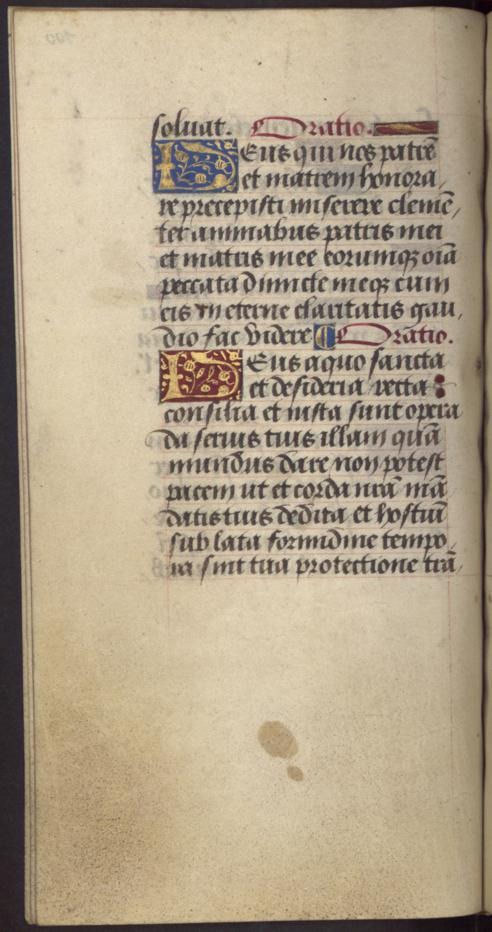 soluat. Oratio.
Deus qui nos patrē
et matrem honora,
re precepisti miserere clemē,
ter animabus patris mei
et matris mee eorumqꝫ oīa
peccata dimitte meqꝫ cum
eis in eterne claritatis gau,
dio fac videre Oratio.
Deus a quo sancta
et desideria recta
consilia et iusta sunt opera
da seruis tuis illam quā
mundus dare non potest
pacem ut et corda nrā mā,
datis tuis dedita et hostiū
sub lata formidine tempo,
ra sint tua protectione trā,